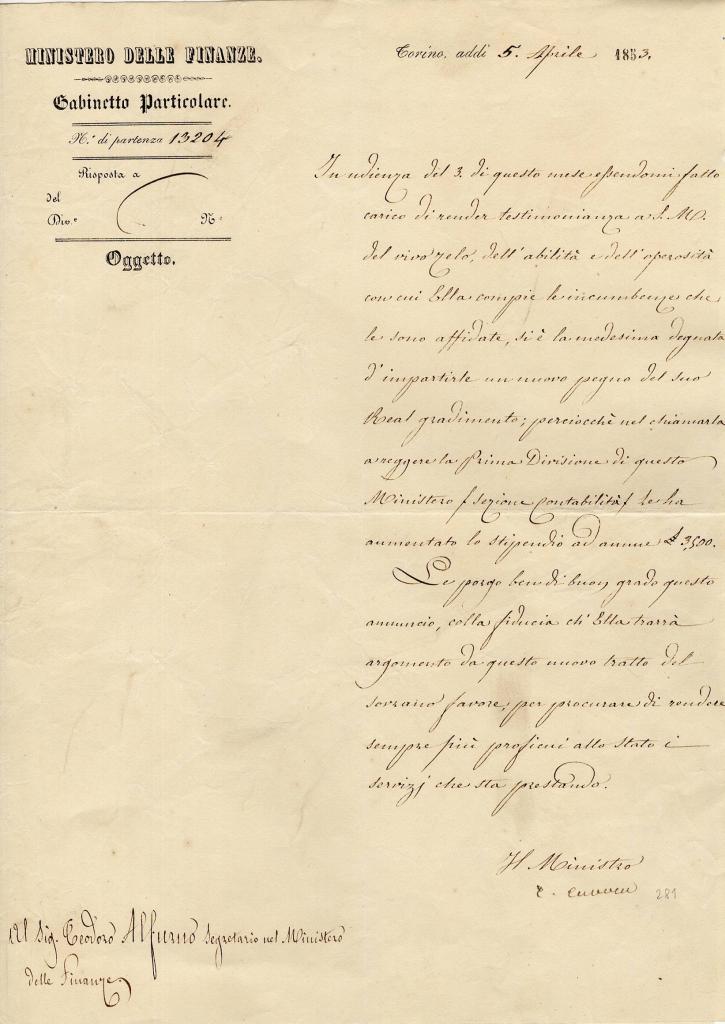 MINISTERO DELLE FINANZE.
Gabinetto Particolare.
N.° di partenza 13204
Risposta a
del
Div.e N.°
Oggetto.
Torino, addì 5. Aprile 1853.
In udienza del 3. di questo mese essendomi fatto
carico di render testimonianza a S. M.
del vivo zelo, dell' abilità e dell' operosità
con cui Ella compie le incumbenze che
le sono affidate, si è la medesima degnata
d' impartirle un nuovo pegno del suo
Real gradimento; perciocchè nel chiamarla
a reggere la Prima Divisione di questo
Ministero (sezione Contabilità) le ha
aumentato lo stipendio ad annue £ 3,500.
Le porgo ben di buon grado questo
annuncio, colla fiducia ch' Ella trarrà
argomento da questo nuovo tratto del
sovrano favore, per procurare di rendere
sempre più proficui allo Stato i
servizj che sta prestando.
Il Ministro
C. Cavour
281
Al Sig. Teodoro Alfurno Segretario nel Ministero
delle Finanze